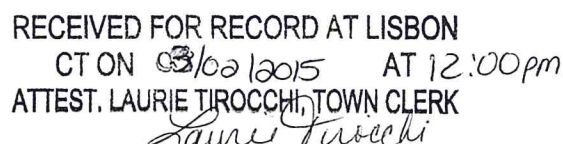 RECEIVED FOR RECORD AT LISBON
CT ON 03/02/2015 AT 12:00pm
ATTEST. LAURIE TIROCCHI, TOWN CLERK
Laurie Tirocchi